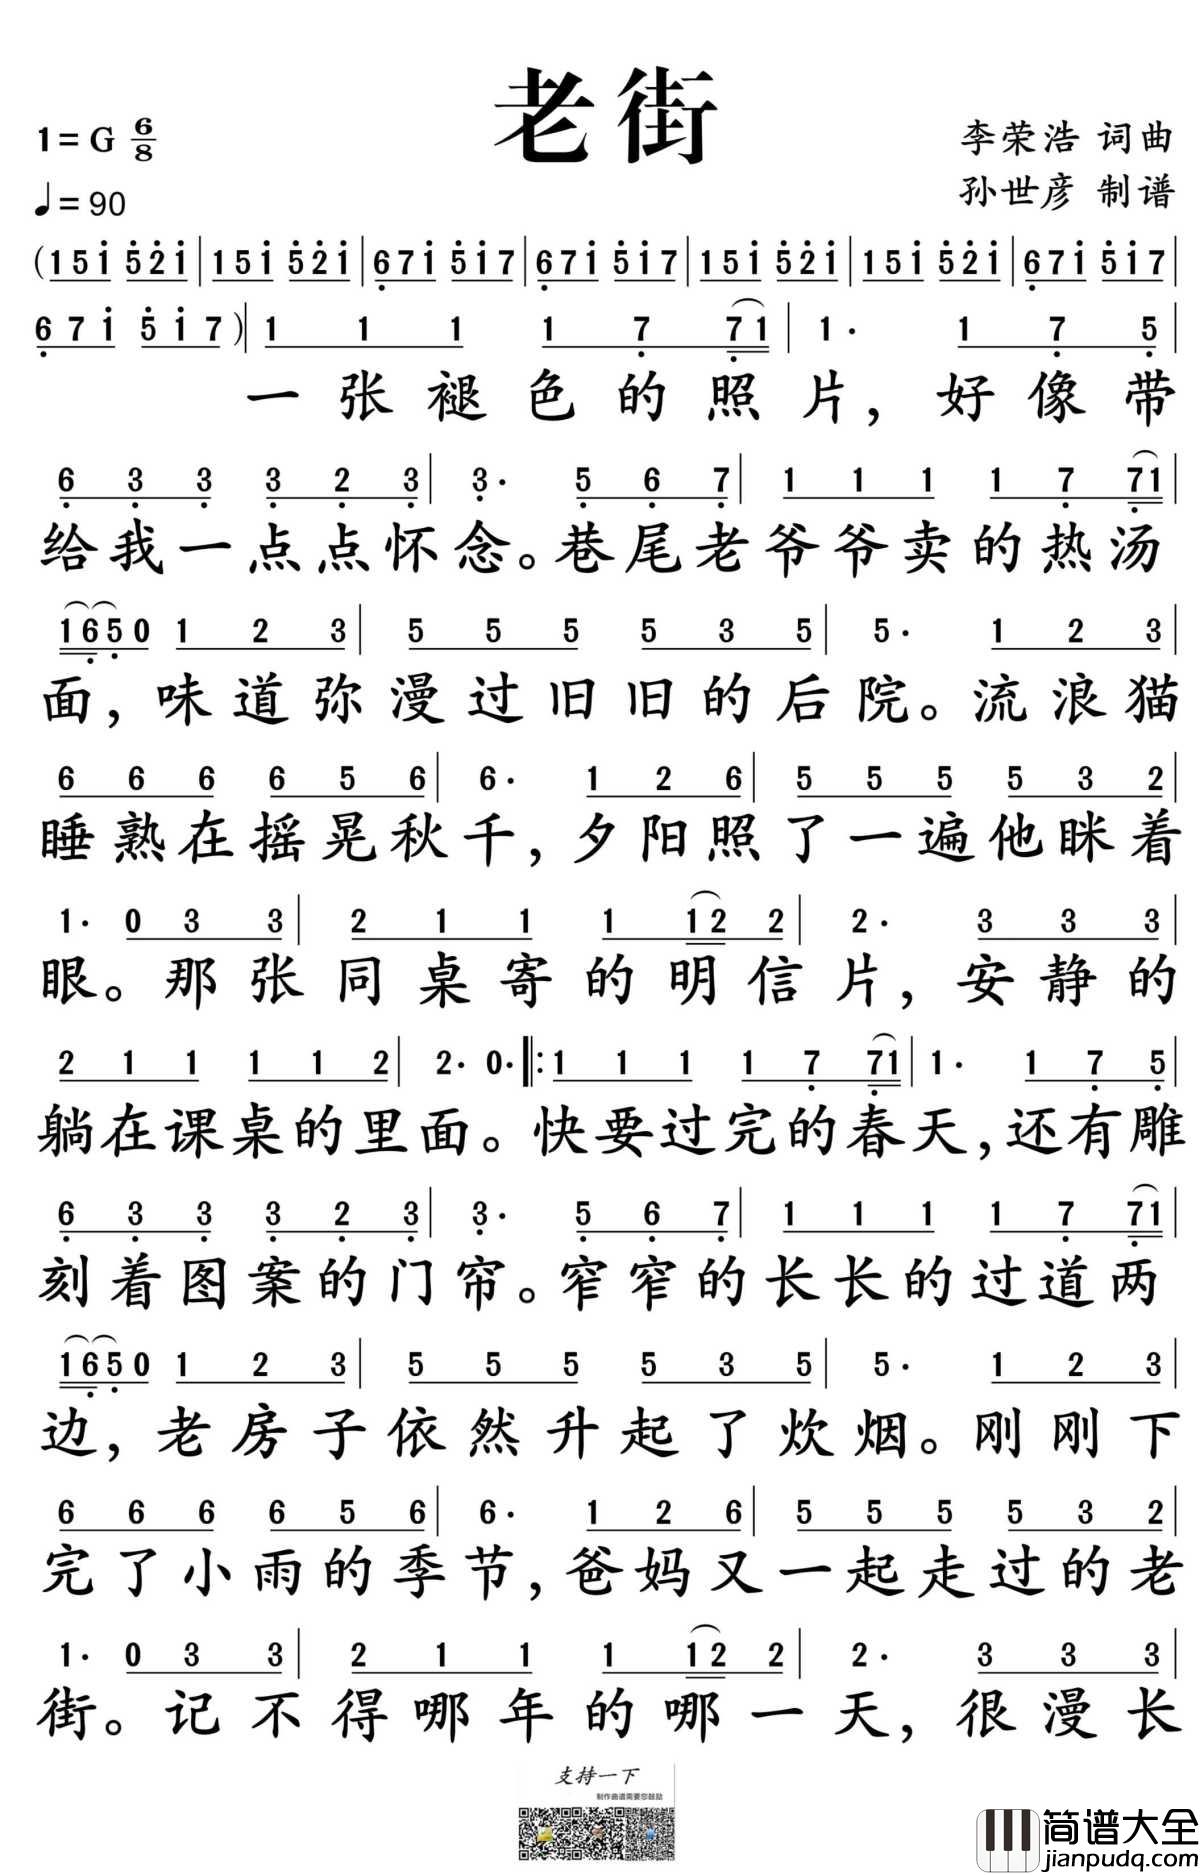 老街
1=G 6/8
李荣浩 词曲
♩=90
孙世彦 制谱
(151 521|151 521|671 517|671 517|151 521|151 521|671 517|
671 517)|1 1 1 1 7 71|1· 1 7 5|
一张褪色的照片，好像带
6 3 3 3 2 3|3· 5 6 7|1 1 1 1 7 71|
给我一点点怀念。巷尾老爷爷卖的热汤
1650 1 2 3|5 5 5 5 3 5|5· 1 2 3|
面，味道弥漫过旧旧的后院。流浪猫
6 6 6 6 5 6|6· 1 2 6|5 5 5 5 3 2|
睡熟在摇晃秋千，夕阳照了一遍他眯着
1· 0 3 3|2 1 1 1 12 2|2· 3 3 3|
眼。那张同桌寄的明信片，安静的
2 1 1 1 1 2|2· 0·‖:1 1 1 1 7 71|1· 1 7 5|
躺在课桌的里面。快要过完的春天，还有雕
6 3 3 3 2 3|3· 5 6 7|1 1 1 1 7 71|
刻着图案的门帘。窄窄的长长的过道两
1650 1 2 3|5 5 5 5 3 5|5· 1 2 3|
边，老房子依然升起了炊烟。刚刚下
6 6 6 6 5 6|6· 1 2 6|5 5 5 5 3 2|
完了小雨的季节，爸妈又一起走过的老
1· 0 3 3|2 1 1 1 12 2|2· 3 3 3|
街。记不得哪年的哪一天，很漫长
支持一下
制作曲谱需要您鼓励
简谱大全
jianpudq.com